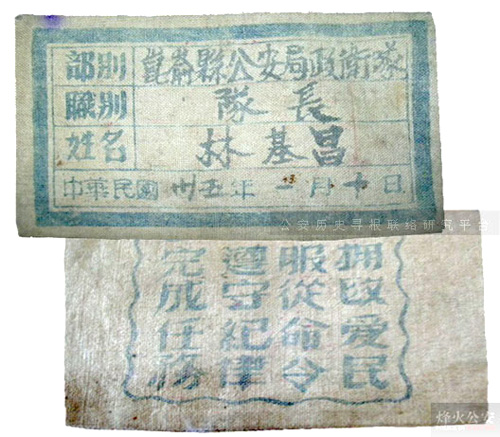 部別 崑嵛縣公安局政衛隊
職別 隊長
姓名 林基昌
中華民國卅五年一月十日
公安历史寻根联络研究平台
擁政愛民
服從命令
遵守紀律
完成任務
烽火公安